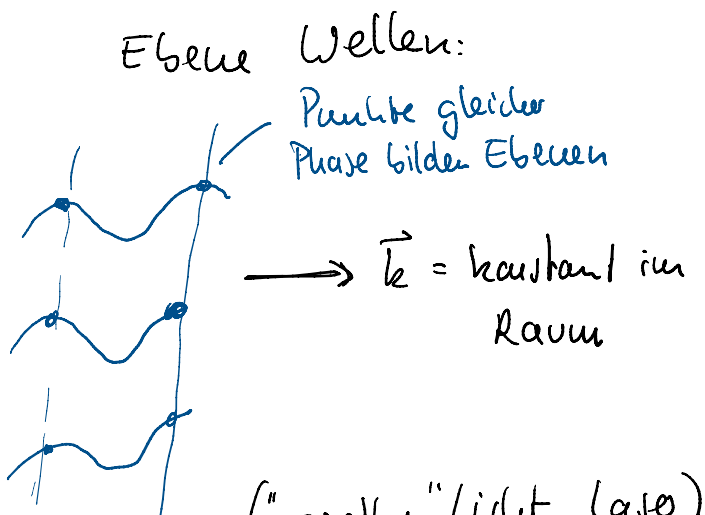 Ebene Wellen:
Punkte gleicher
Phase bilden Ebenen
k⃗ = konstant im
Raum